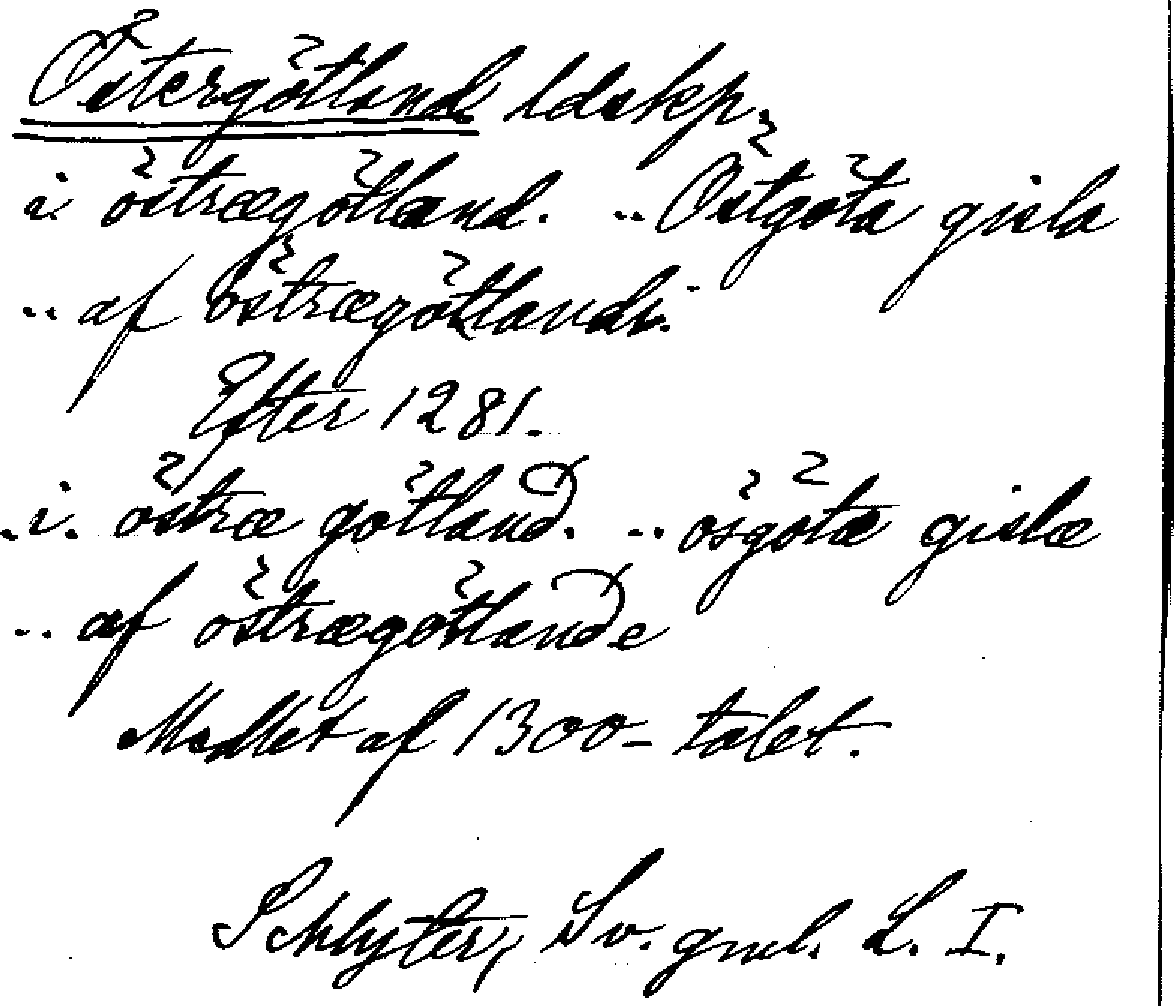 Östergötland ldskp.
i östrægötlænd. .. Östgöta gisla
.. af östrægötlandi.
Efter 1281.
.. i. östræ götland. .. ösgötæ gislæ
.. af östrægötlande
Medlet af 1300-talet.
Schlyter, Sv. gml. L. I.